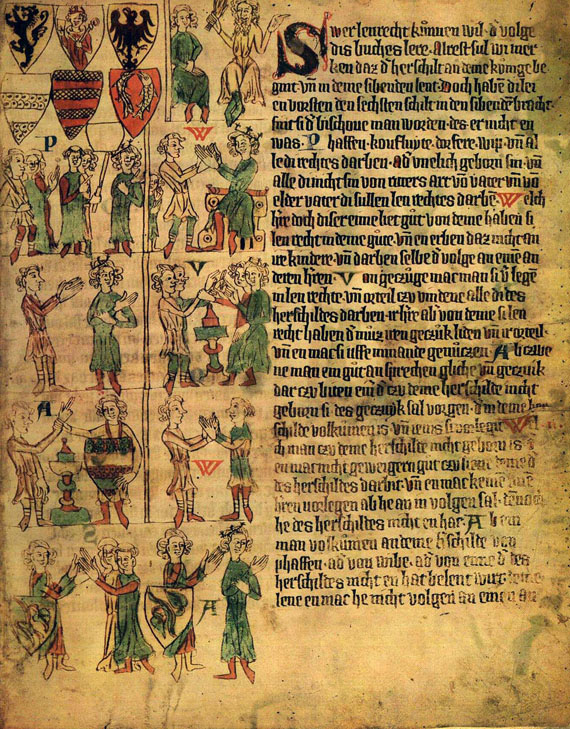 Swer lenrecht kůnnen wil · d̕ volge
dis buches lere · Alrest sul wi mer
ken daz d̕ herschilt an deme kůnige be
gint · vn̄ in deme sibenden lent · Doch habē di lei
en vorsten den sechsten schilt in den sibendē bracht ·
sint si d̕ bischoue man worden · des er nicht en
was · Phaffen · koufluyte · dorfere · wip · vn̄ al
le di rechtes darben · ad̕ vnelich geborn sin · vn̄
alle di nicht sin von ritters art von vater vn̄ vō
elder vater di sullen len rechtes darbē · Welch
h̕re doch diser eime liet gut von deme habē si
len recht in deme gute · vn̄ en erben daz nicht an
ire kindere · vn̄ darben selbe d̕ volge an eine an
deren h̕ren · Von geczuge mac man si v̕legē
in len rechte · vn̄ orteil czu vindene alle di des
herschildes darben · ir h̕re ab von deme si len
recht haben d̕ můz iren geczuk liden vn̄ ir orteil ·
vn̄ en mac si uffe nimande genůczen · Ab czwe
ne man ein gůt an sprechen gliche vn̄ geczuk
dar czu biten ein̄ d̕ czu deme herschilde nicht
geborn si des geczuk sal vorgen · d̕ in deme
schilde volkumen is · vn̄ ienis
ch man czu deme herschilde nicht geborn is
en mac nicht geweigern gut czu
des herschildes darbit · vn̄ en mac keine
h̕ren vorlegen ab he an im volgen sal ·
he des herschildes nicht en hat · Ab ein
man volkumen an deme h̕schilde von
phaffen · ad̕ von wibe · ad̕ von eime d̕ des
herschildes nicht en hat belent wirt
lene en mac he nicht volgen an einen an
P
W
V
A
W
A